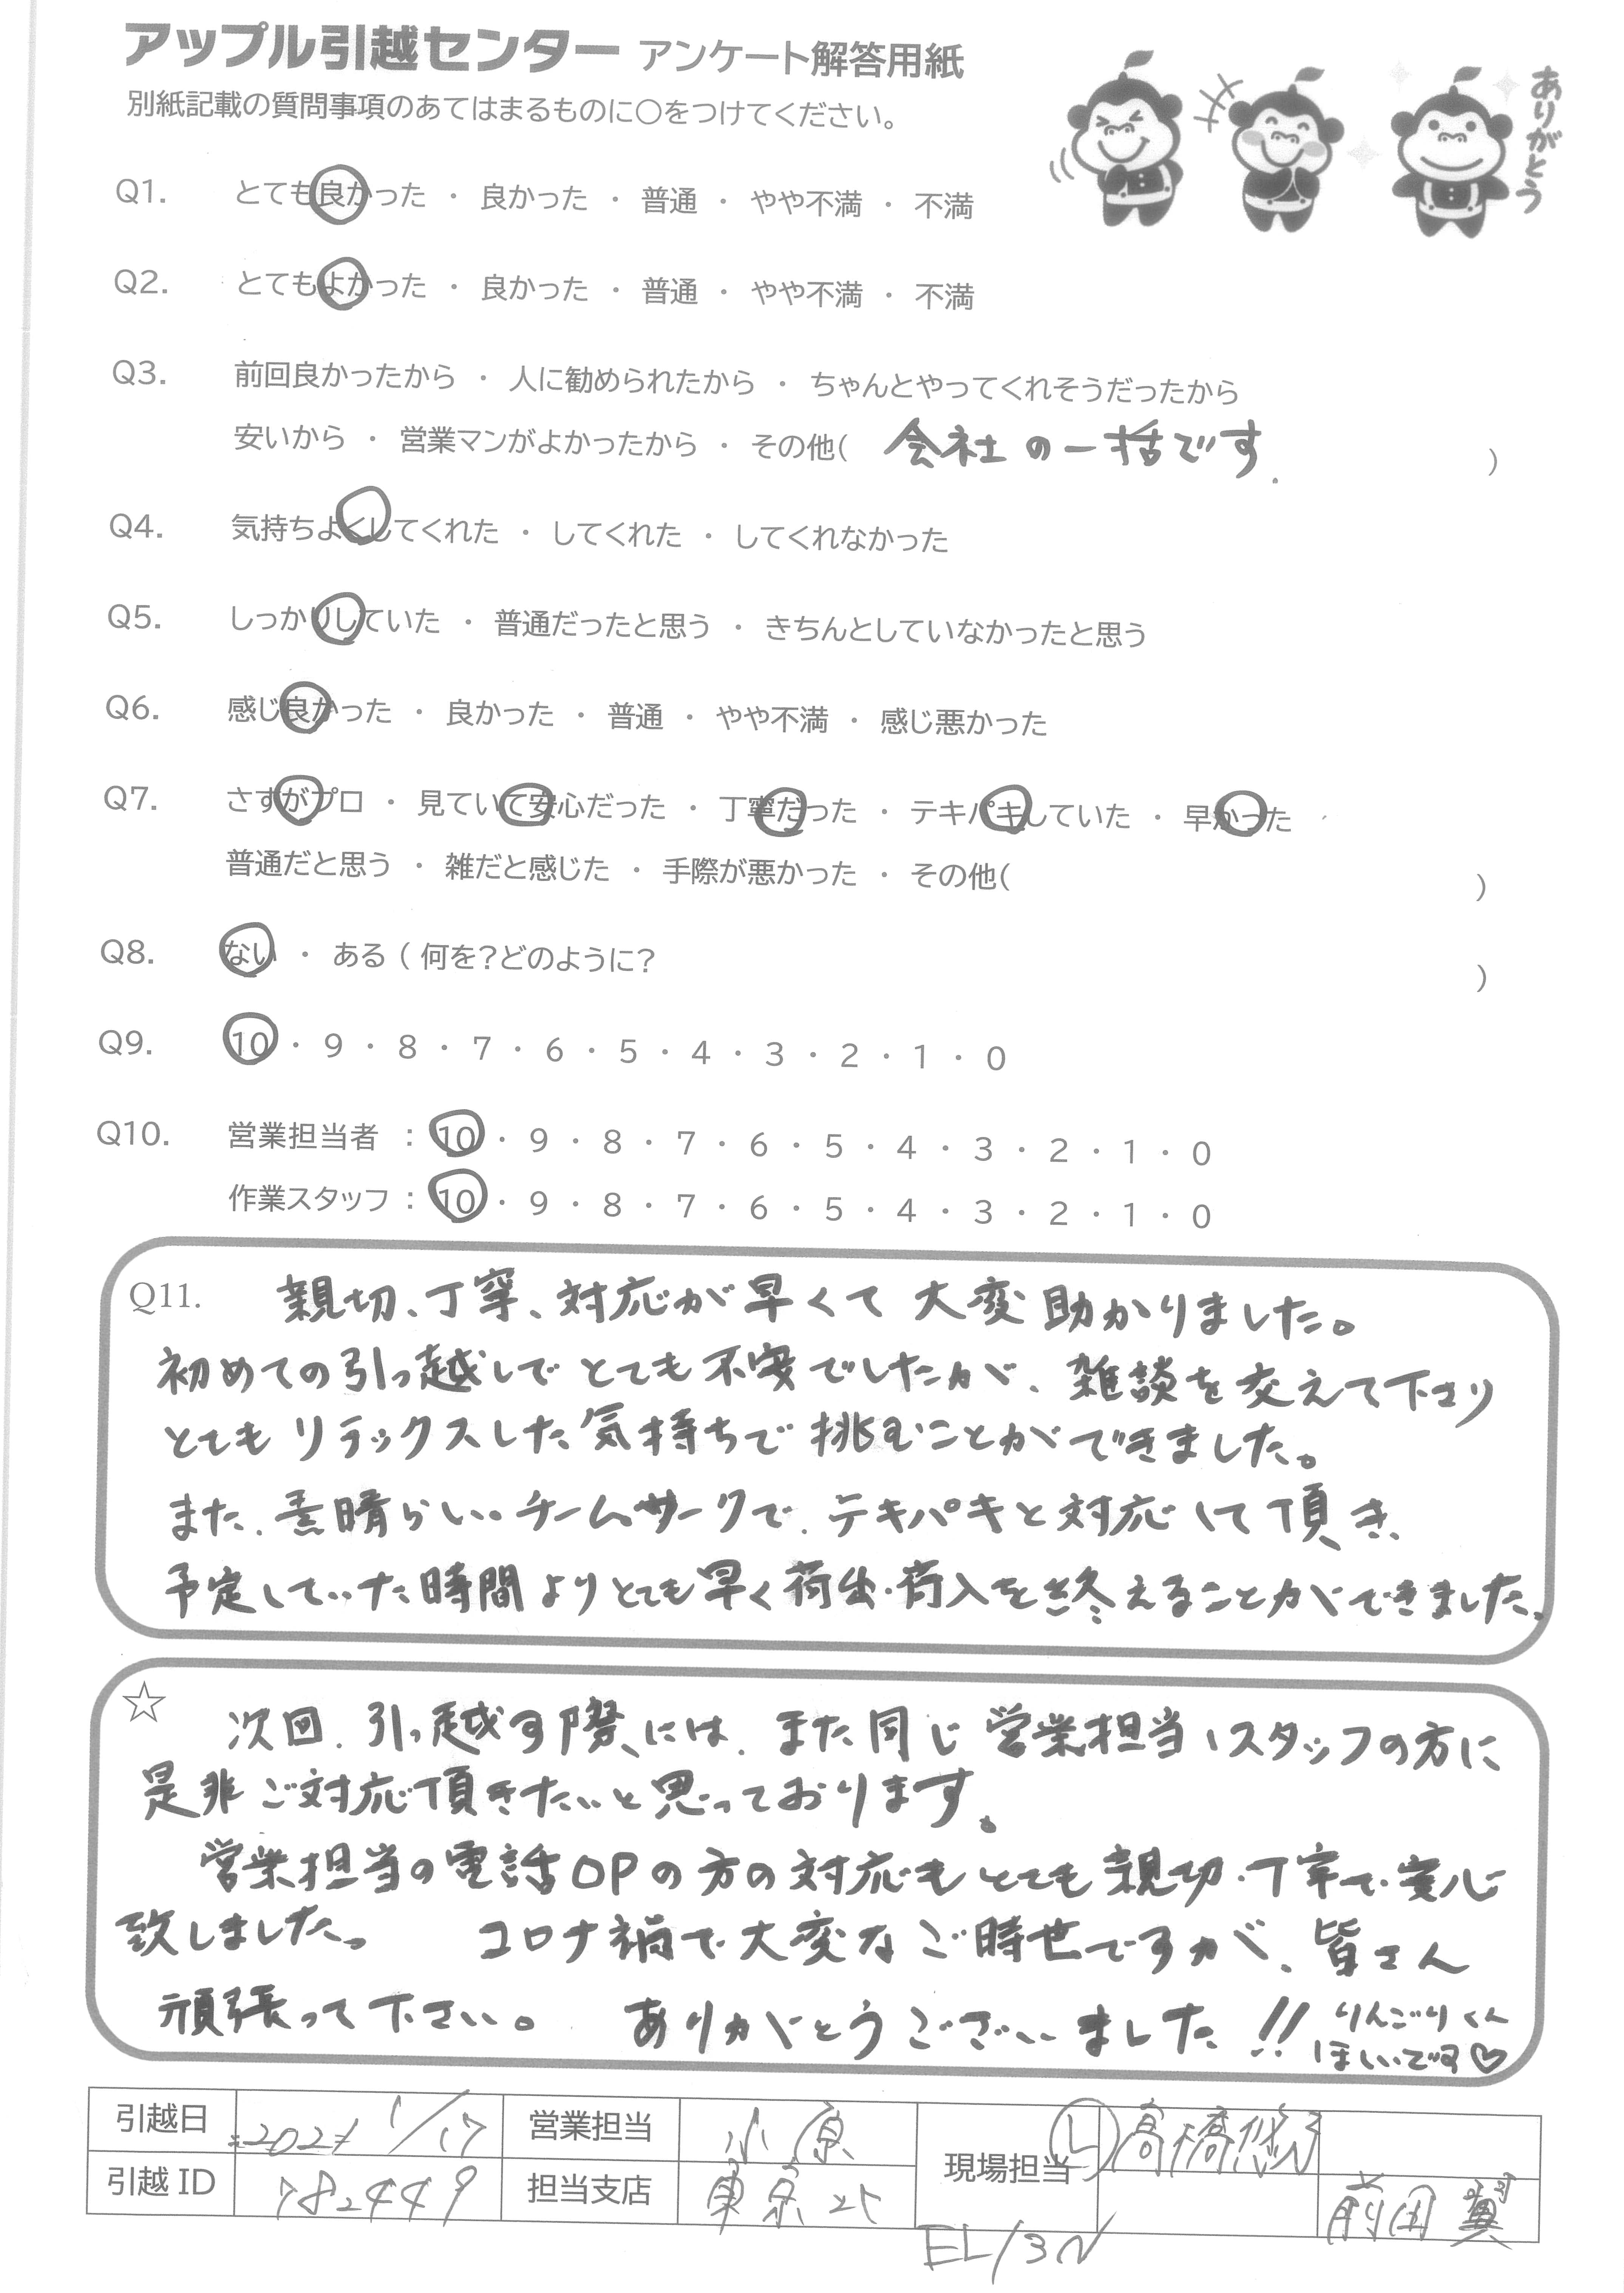 アップル引越センター アンケート解答用紙
別紙記載の質問事項のあてはまるものに○をつけてください。
ありがとう
Q1. とても良かった ・ 良かった ・ 普通 ・ やや不満 ・ 不満
Q2. とてもよかった ・ 良かった ・ 普通 ・ やや不満 ・ 不満
Q3. 前回良かったから ・ 人に勧められたから ・ ちゃんとやってくれそうだったから
安いから ・ 営業マンがよかったから ・ その他( 会社の一括です. )
Q4. 気持ちよくしてくれた ・ してくれた ・ してくれなかった
Q5. しっかりしていた ・ 普通だったと思う ・ きちんとしていなかったと思う
Q6. 感じ良かった ・ 良かった ・ 普通 ・ やや不満 ・ 感じ悪かった
Q7. さすがプロ ・ 見ていて安心だった ・ 丁寧だった ・ テキパキしていた ・ 早かった
普通だと思う ・ 雑だと感じた ・ 手際が悪かった ・ その他( )
Q8. ない ・ ある ( 何を?どのように? )
Q9. 10 ・ 9 ・ 8 ・ 7 ・ 6 ・ 5 ・ 4 ・ 3 ・ 2 ・ 1 ・ 0
Q10. 営業担当者 : 10 ・ 9 ・ 8 ・ 7 ・ 6 ・ 5 ・ 4 ・ 3 ・ 2 ・ 1 ・ 0
作業スタッフ : 10 ・ 9 ・ 8 ・ 7 ・ 6 ・ 5 ・ 4 ・ 3 ・ 2 ・ 1 ・ 0
Q11. 親切、丁寧、対応が早くて大変助かりました。
初めての引っ越しでとても不安でしたが、雑談を交えて下さり
とてもリラックスした気持ちで挑むことができました。
また、素晴らしいチームワークで、テキパキと対応して頂き、
予定していた時間よりとても早く荷出・荷入を終えることができました。
☆ 次回、引っ越す際には、また同じ営業担当、スタッフの方に
是非ご対応頂きたいと思っております。
営業担当の電話OPの方の対応もとても親切・丁寧で安心
致しました。 コロナ禍で大変なご時世ですが、皆さん
頑張って下さい。 ありがとうございました!! りんごりくん
ほしいです♡
引越日 2021 1/17 営業担当 小原 現場担当 Ⓛ 高橋悠
引越 ID 782449 担当支店 東京北 前田 翼
EL/3N